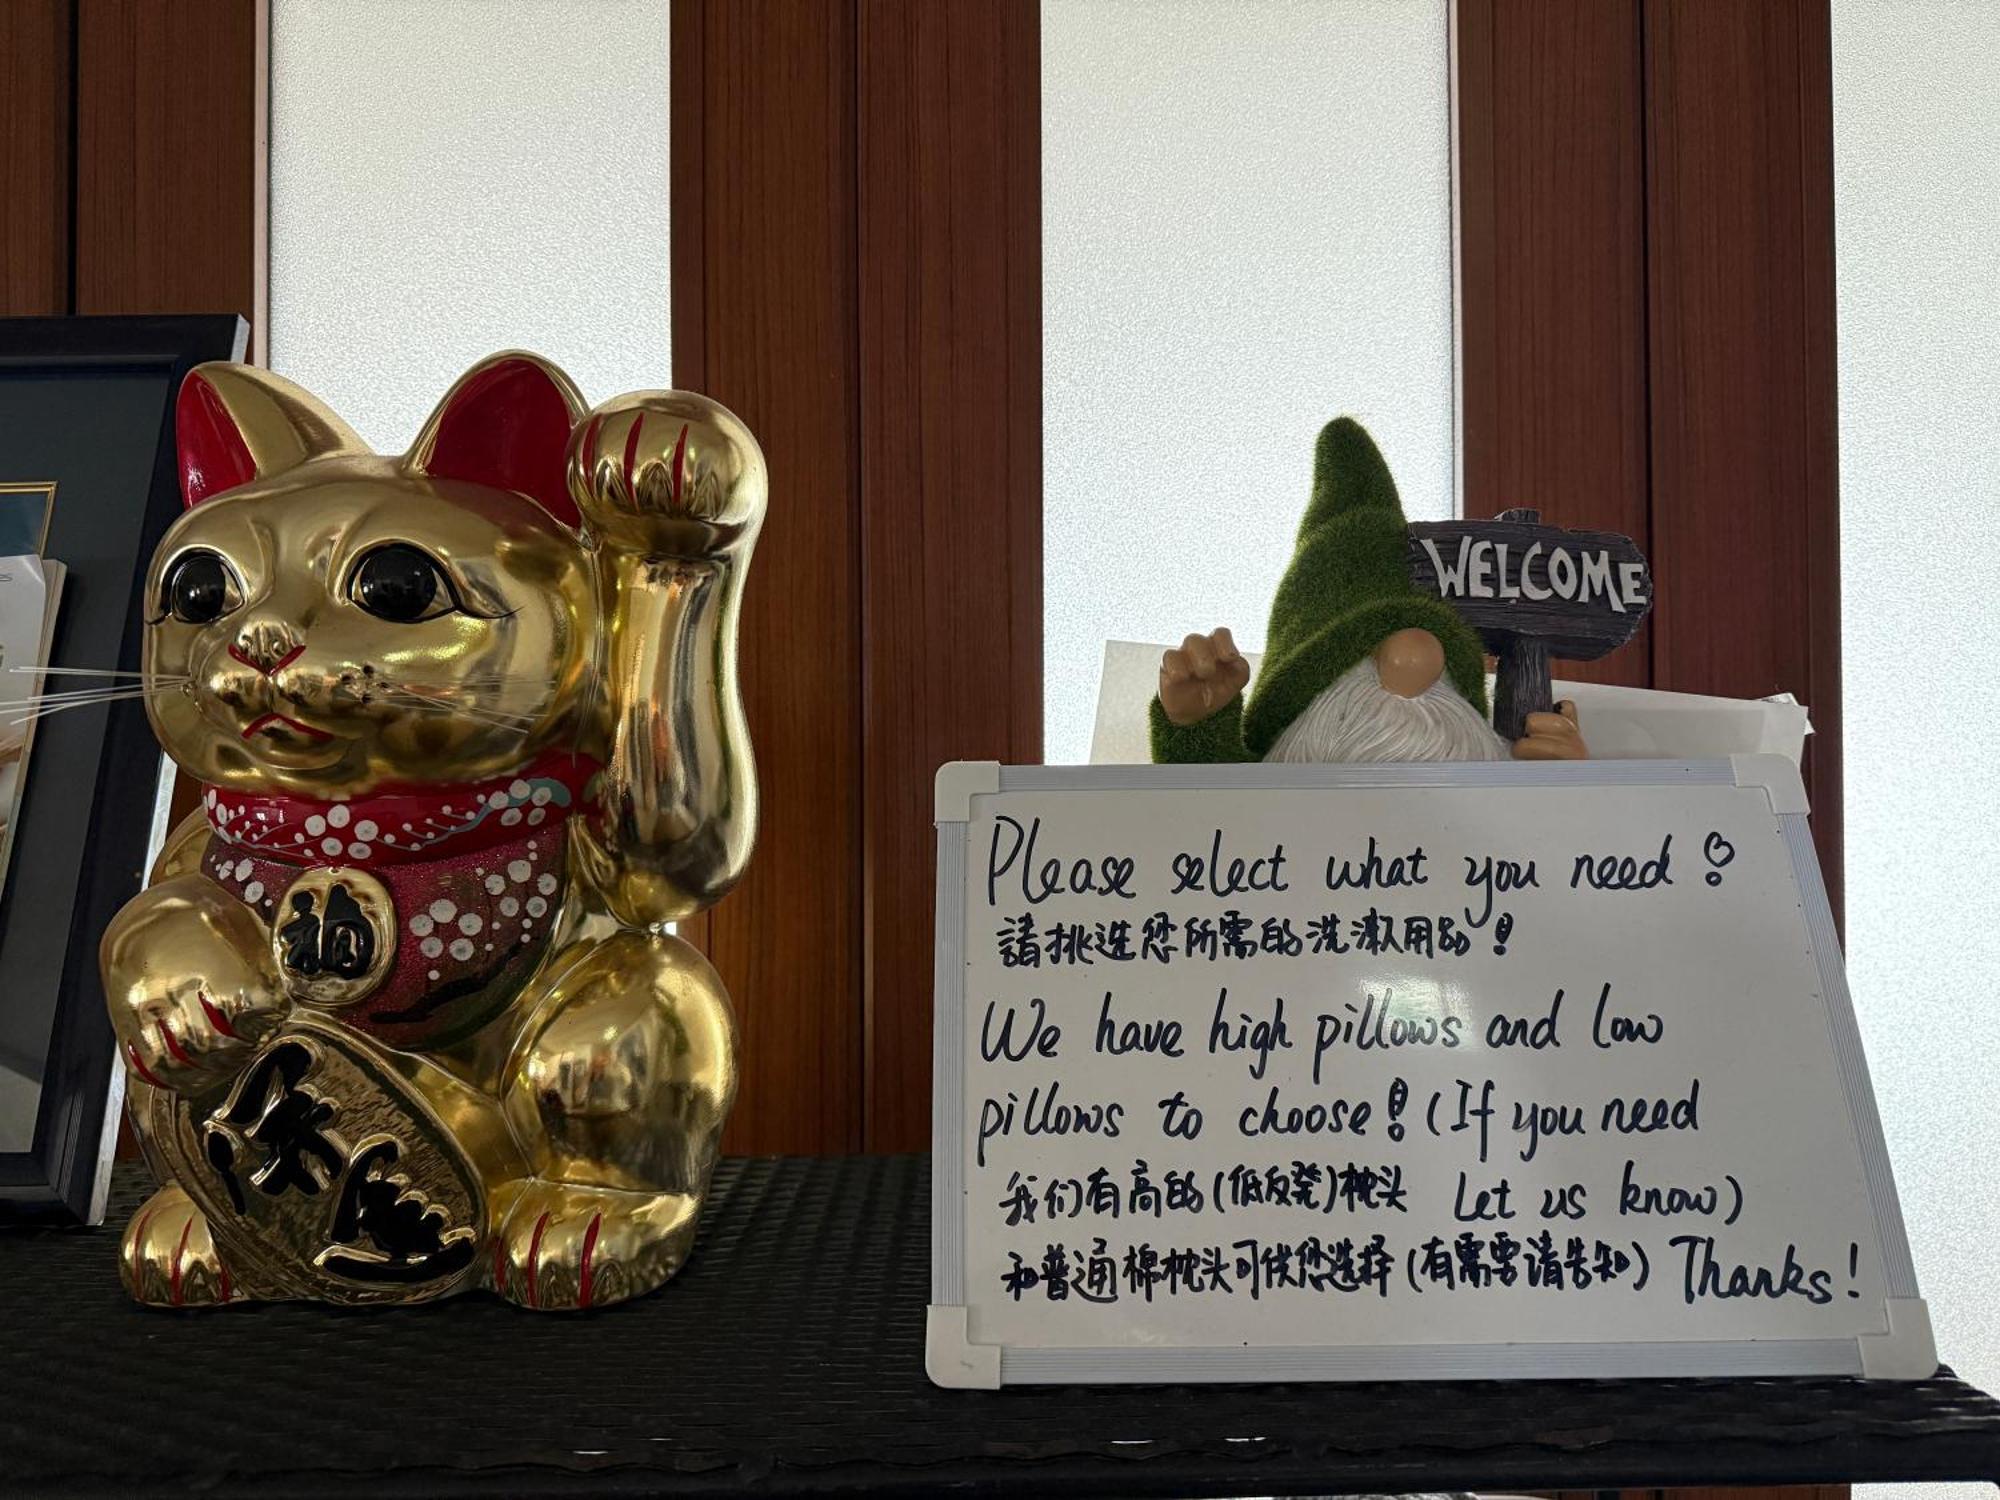 福
WELCOME
Please select what you need!
請挑选您所需的洗漱用品!
We have high pillows and low
pillows to choose! (If you need
我们有高的(低反発)枕头 Let us know)
和普通棉枕头可供您选择(有需要请告知) Thanks!